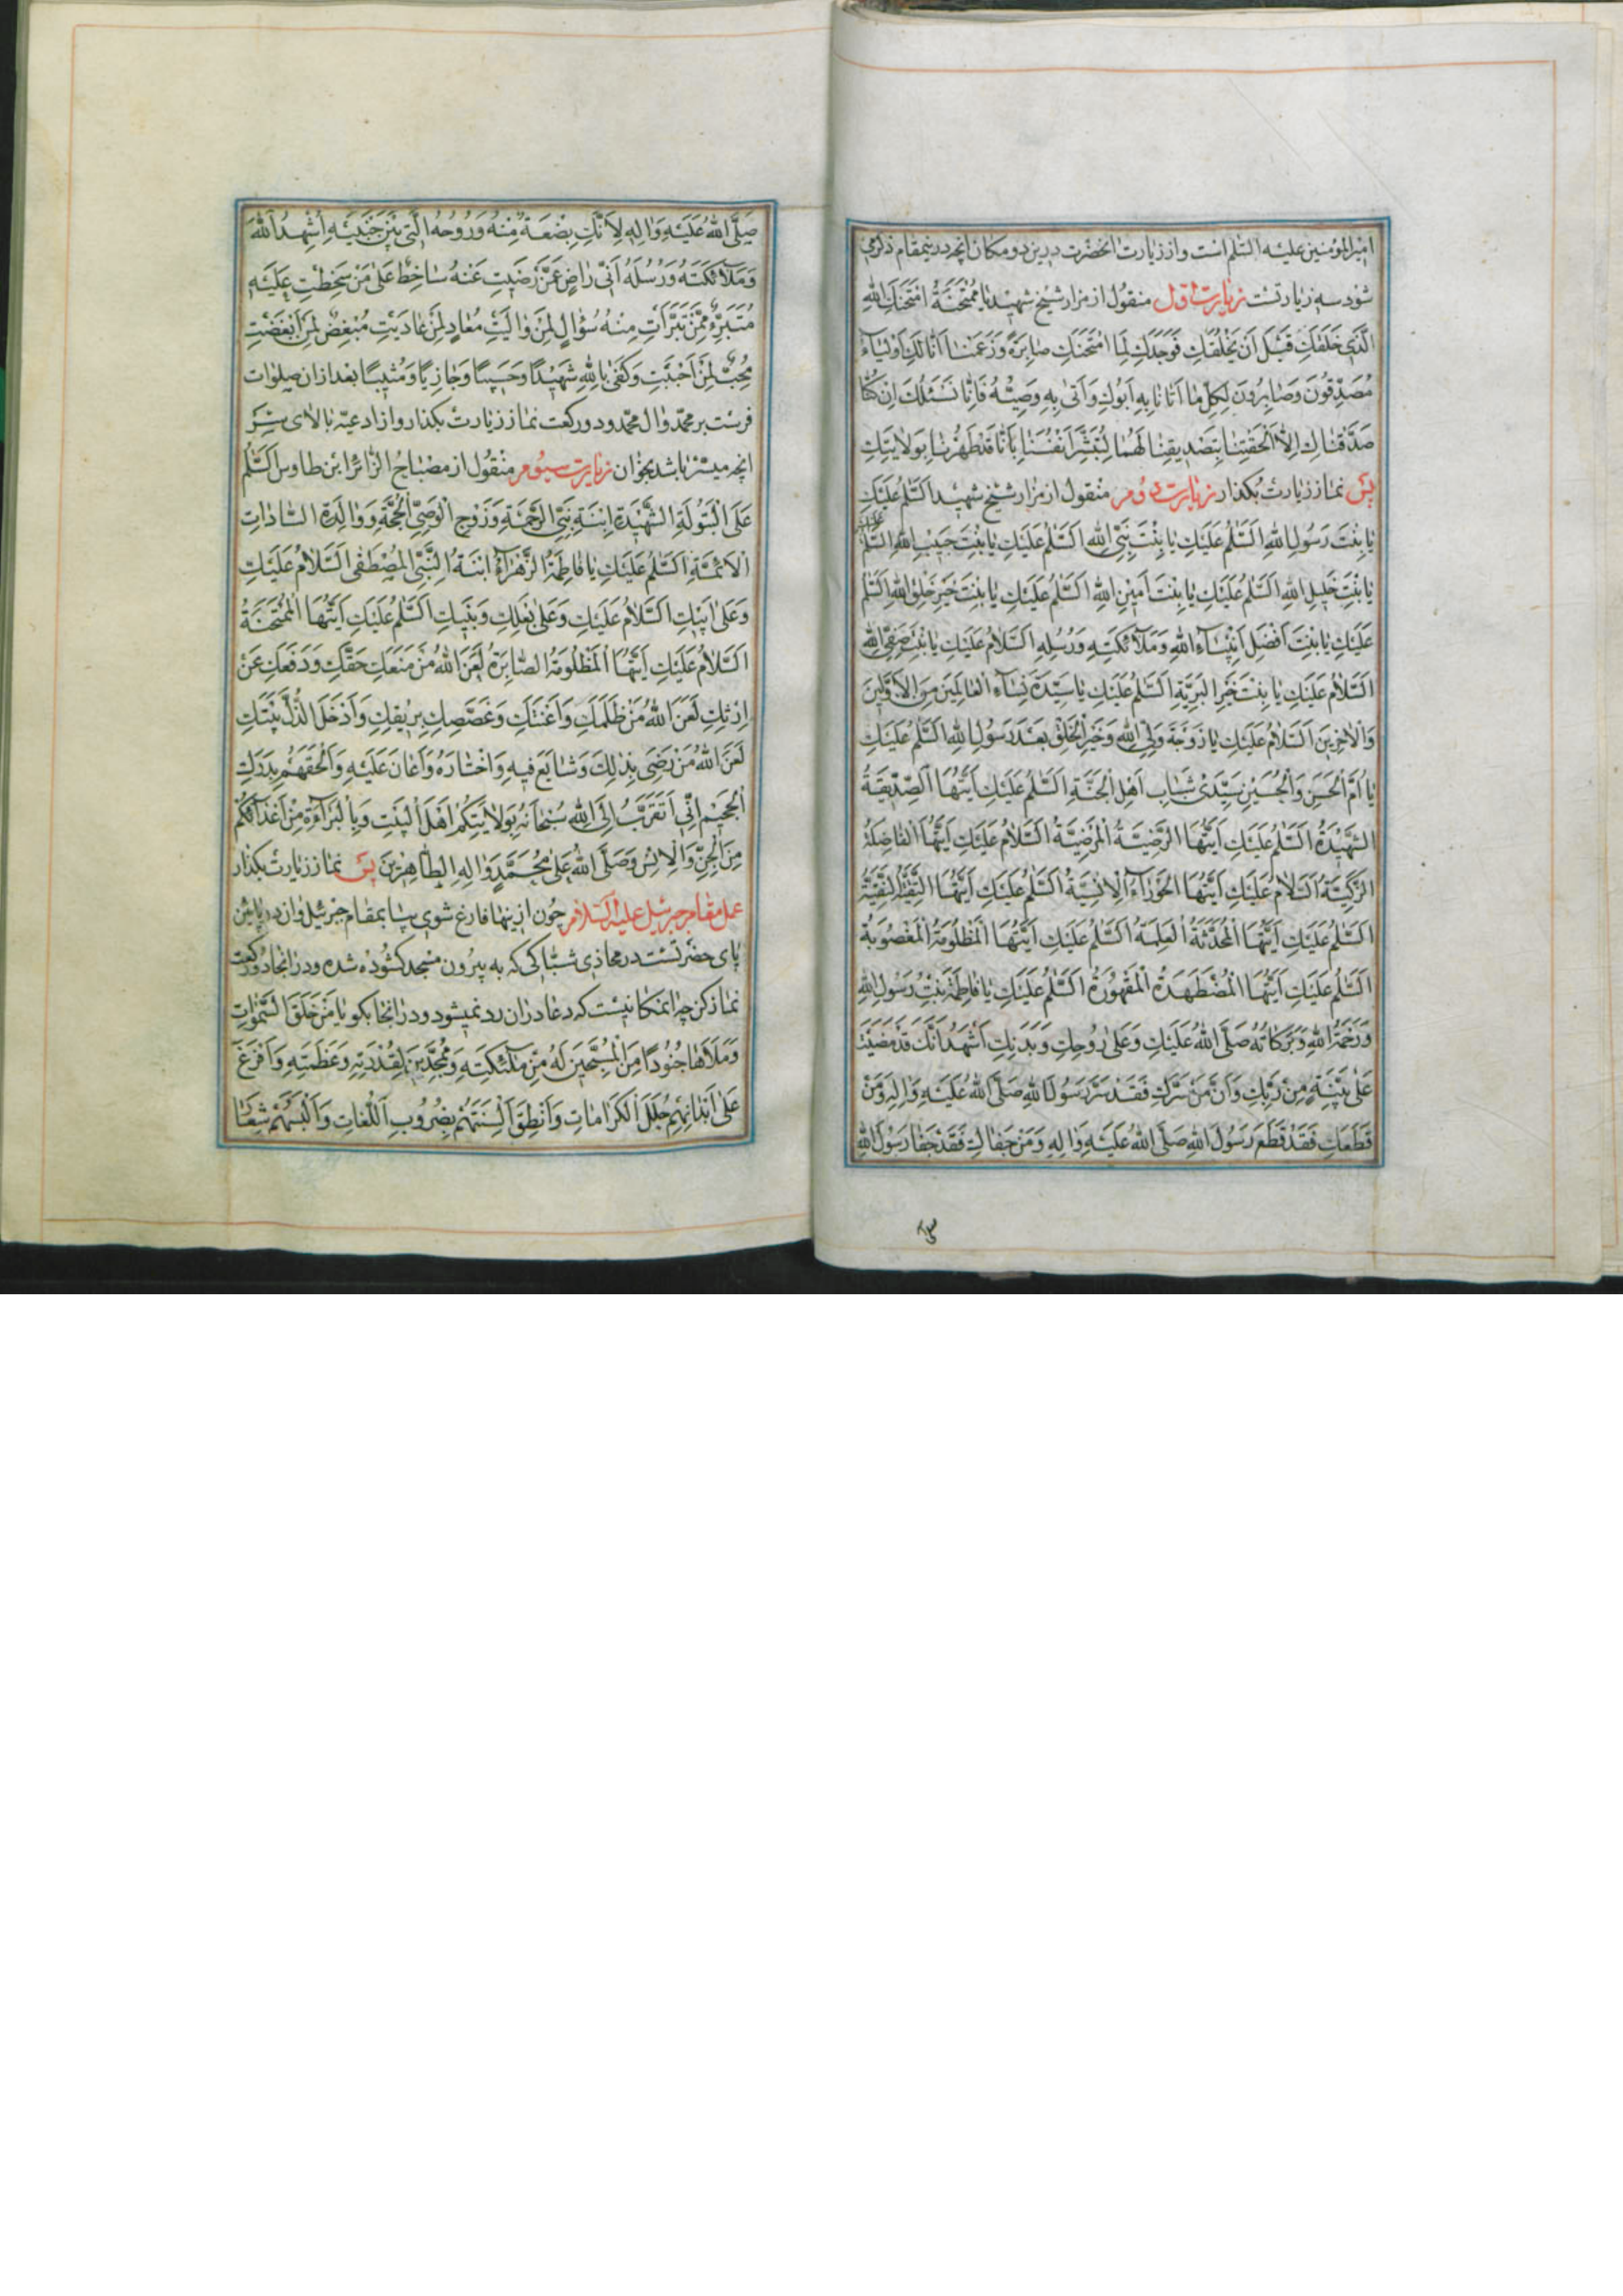 امیرالمؤمنین علیه السّلم است و از زیارت انحضرت درین دو مکان انچه درینمقام ذکر می
شود سه زیارتست زیارت اوّل منقول از مزار شیخ شهید یا مُمْتَحَنَةُ امْتَحَنَكِ اللهُ
الَّذی خَلَقَكِ قَبْلَ اَنْ یَخْلُقَكِ فَوَجَدَكِ لِمَا امْتَحَنَكِ صابِرَةً وَزَعَمْنا اَنّا لَكِ اَوْلِیاءُ
مُصَدِّقُونَ وَصابِرُونَ لِكُلِّ ما اَتانا بِهِ اَبُوكِ وَاَتی بِهِ وَصِیُّهُ فَاِنّا نَسْئَلُكِ اِنْ كُنّا
صَدَّقْناكِ اِلّا اَلْحَقْتِنا بِتَصْدیقِنا لَهُما لِنُبَشِّرَ اَنْفُسَنا بِاَنّا قَدْ طَهُرْنا بِوِلایَتِكِ
پس نماز زیارت بکذار زیارت دوم منقول از مزار شیخ شهید اَلسَّلمُ عَلَیْكِ
یا بِنْتَ رَسُولِ اللهِ اَلسَّلمُ عَلَیْكِ یا بِنْتَ نَبِیِّ اللهِ اَلسَّلمُ عَلَیْكِ یا بِنْتَ حَبیبِ اللهِ اَلسَّلمُ عَلَیْكِ
یا بِنْتَ خَلیلِ اللهِ اَلسَّلمُ عَلَیْكِ یا بِنْتَ اَمینِ اللهِ اَلسَّلمُ عَلَیْكِ یا بِنْتَ خَیْرِ خَلْقِ اللهِ اَلسَّلمُ
عَلَیْكِ یا بِنْتَ اَفْضَلِ اَنْبِیاءِ اللهِ وَمَلآئكَتِهِ وَرُسُلِهِ اَلسَّلامُ عَلَیْكِ یا بِنْتَ صَفِیِّ اللهِ
اَلسَّلامُ عَلَیْكِ یا بِنْتَ خَیْرِ الْبَرِیَّةِ اَلسَّلمُ عَلَیْكِ یا سَیِّدَةَ نِسآءِ الْعالَمینَ مِنَ الْاَوَّلینَ
وَالْاخِرینَ اَلسَّلامُ عَلَیْكِ یا زَوْجَةَ وَلِیِّ اللهِ وَخَیْرِ الْخَلْقِ بَعْدَ رَسُولِ اللهِ اَلسَّلمُ عَلَیْكِ
یا اُمَّ الْحَسَنِ وَالْحُسَیْنِ سَیِّدَیْ شَبابِ اَهْلِ الْجَنَّةِ اَلسَّلمُ عَلَیْكِ اَیَّتُهَا الصِّدّیقَةُ
الشَّهیدَةُ اَلسَّلمُ عَلَیْكِ اَیَّتُهَا الرَّضِیَّةُ الْمَرْضِیَّةُ اَلسَّلامُ عَلَیْكِ اَیَّتُهَا الْفاضِلَةُ
الزَّكِیَّةُ اَلسَّلامُ عَلَیْكِ اَیَّتُهَا الْحَوْرآءُ الْاِنْسِیَّةُ اَلسَّلمُ عَلَیْكِ اَیَّتُهَا التَّقِیَّةُ النَّقِیَّةُ
اَلسَّلمُ عَلَیْكِ اَیَّتُهَا الْمُحَدَّثَةُ الْعَلیمَةُ اَلسَّلمُ عَلَیْكِ اَیَّتُهَا الْمَظْلُومَةُ الْمَغْصُوبَةُ
اَلسَّلمُ عَلَیْكِ اَیَّتُهَا الْمُضْطَهَدَةُ الْمَقْهُورَةُ اَلسَّلمُ عَلَیْكِ یا فاطِمَةُ بِنْتَ رَسُولِ اللهِ
وَرَحْمَةُ اللهِ وَبَرَكاتُهُ صَلَّی اللهُ عَلَیْكِ وَعَلی رُوحِكِ وَبَدَنِكِ اَشْهَدُ اَنَّكِ قَدْ مَضَیْتِ
عَلی بَیِّنَةٍ مِنْ رَبِّكِ وَاَنَّ مَنْ سَرَّكِ فَقَدْ سَرَّ رَسُولَ اللهِ صَلَّی اللهُ عَلَیْهِ وَالِهِ وَمَنْ
قَطَعَكِ فَقَدْ قَطَعَ رَسُولَ اللهِ صَلَّی اللهُ عَلَیْهِ وَالِهِ وَمَنْ جَفاكِ فَقَدْ جَفا رَسُولَ اللهِ
صَلَّی اللهُ عَلَیْهِ وَالِهِ لِاَنَّكِ بِضْعَةٌ مِنْهُ وَرُوحُهُ الَّتی بَیْنَ جَنْبَیْهِ اُشْهِدُ اللهَ
وَمَلآئكَتَهُ وَرُسُلَهُ اَنّی راضٍ عَمَّنْ رَضیتِ عَنْهُ ساخِطٌ عَلی مَنْ سَخِطْتِ عَلَیْهِ
مُتَبَرِّءٌ مِمَّنْ تَبَرَّاْتِ مِنْهُ سُؤالٍ لِمَنْ والَیْتِ مُعادٍ لِمَنْ عادَیْتِ مُبْغِضٌ لِمَنْ اَبْغَضْتِ
مُحِبٌّ لِمَنْ اَحْبَبْتِ وَكَفی بِاللهِ شَهیدًا وَحَسیبًا وَجازِیًا وَمُثیبًا بعد ازان صلوات
فرست بر محمّد و ال محمّد و دو رکعت نماز زیارت بکذار و از ادعیّه بالای سر
انچه میسّر باشد بخوان زیارت سیوم منقول از مصباح الزّائر ابن طاوس اَلسَّلمُ
عَلَی الْبَتُولَةِ الشَّهیدَةِ اِبْنَةِ نَبِیِّ الرَّحْمَةِ وَزَوْجِ الْوَصِیِّ الْحُجَّةِ وَوالِدَةِ السّاداتِ
الْاَئمَّةِ اَلسَّلمُ عَلَیْكِ یا فاطِمَةُ الزَّهْرآءُ ابْنَةُ النَّبِیِّ الْمُصْطَفی اَلسَّلامُ عَلَیْكِ
وَعَلی اَبیكِ اَلسَّلامُ عَلَیْكِ وَعَلی بَعْلِكِ وَبَنیكِ اَلسَّلمُ عَلَیْكِ اَیَّتُهَا الْمُمْتَحَنَةُ
اَلسَّلامُ عَلَیْكِ اَیَّتُهَا الْمَظْلُومَةُ الصّابِرَةُ لَعَنَ اللهُ مَنْ مَنَعَكِ حَقَّكِ وَدَفَعَكِ عَنْ
اِرْثِكِ لَعَنَ اللهُ مَنْ ظَلَمَكِ وَاَعْنَتَكِ وَغَصَّصَكِ بِریقِكِ وَاَدْخَلَ الذُّلَّ بَیْتَكِ
لَعَنَ اللهُ مَنْ رَضِیَ بِذلِكَ وَشایَعَ فیهِ وَاخْتارَهُ وَاَعانَ عَلَیْهِ وَاَلْحَقَهُمْ بِدَرَكِ
الْجَحیمِ اِنّی اَتَقَرَّبُ اِلَی اللهِ سُبْحانَهُ بِوِلایَتِكُمْ اَهْلَ الْبَیْتِ وَبِالْبَرآءَةِ مِنْ اَعْدآئكُمْ
مِنَ الْجِنِّ وَالْاِنْسِ وَصَلَّی اللهُ عَلی مُحَمَّدٍ وَالِهِ الطّاهِرینَ پس نماز زیارت بکذار
عمل مقام جبرئیل علیه السّلام چون ازینها فارغ شوی بیا بمقام جبرئیل و ان در پایین
پای حضرتست در محاذی شبّاکی که به بیرون مسجد کشوده شده و در انجا دو رکعت
نماز کن چه انمکانیست که دعا در ان رد نمیشود و در انجا بکو یا مَنْ خَلَقَ السَّمواتِ
وَمَلَاَها جُنُودًا مِنَ الْمُسَبِّحینَ لَهُ مِنْ مَلآئكَتِهِ وَمُمَجِّدینَ لِقُدْرَتِهِ وَعَظَمَتِهِ وَاَفْرَغَ
عَلی اَبْدانِهِمْ حُلَلَ الْكَراماتِ وَاَنْطَقَ اَلْسِنَتَهُمْ بِضُرُوبِ اللُّغاتِ وَاَلْبَسَهُمْ شِعارَ